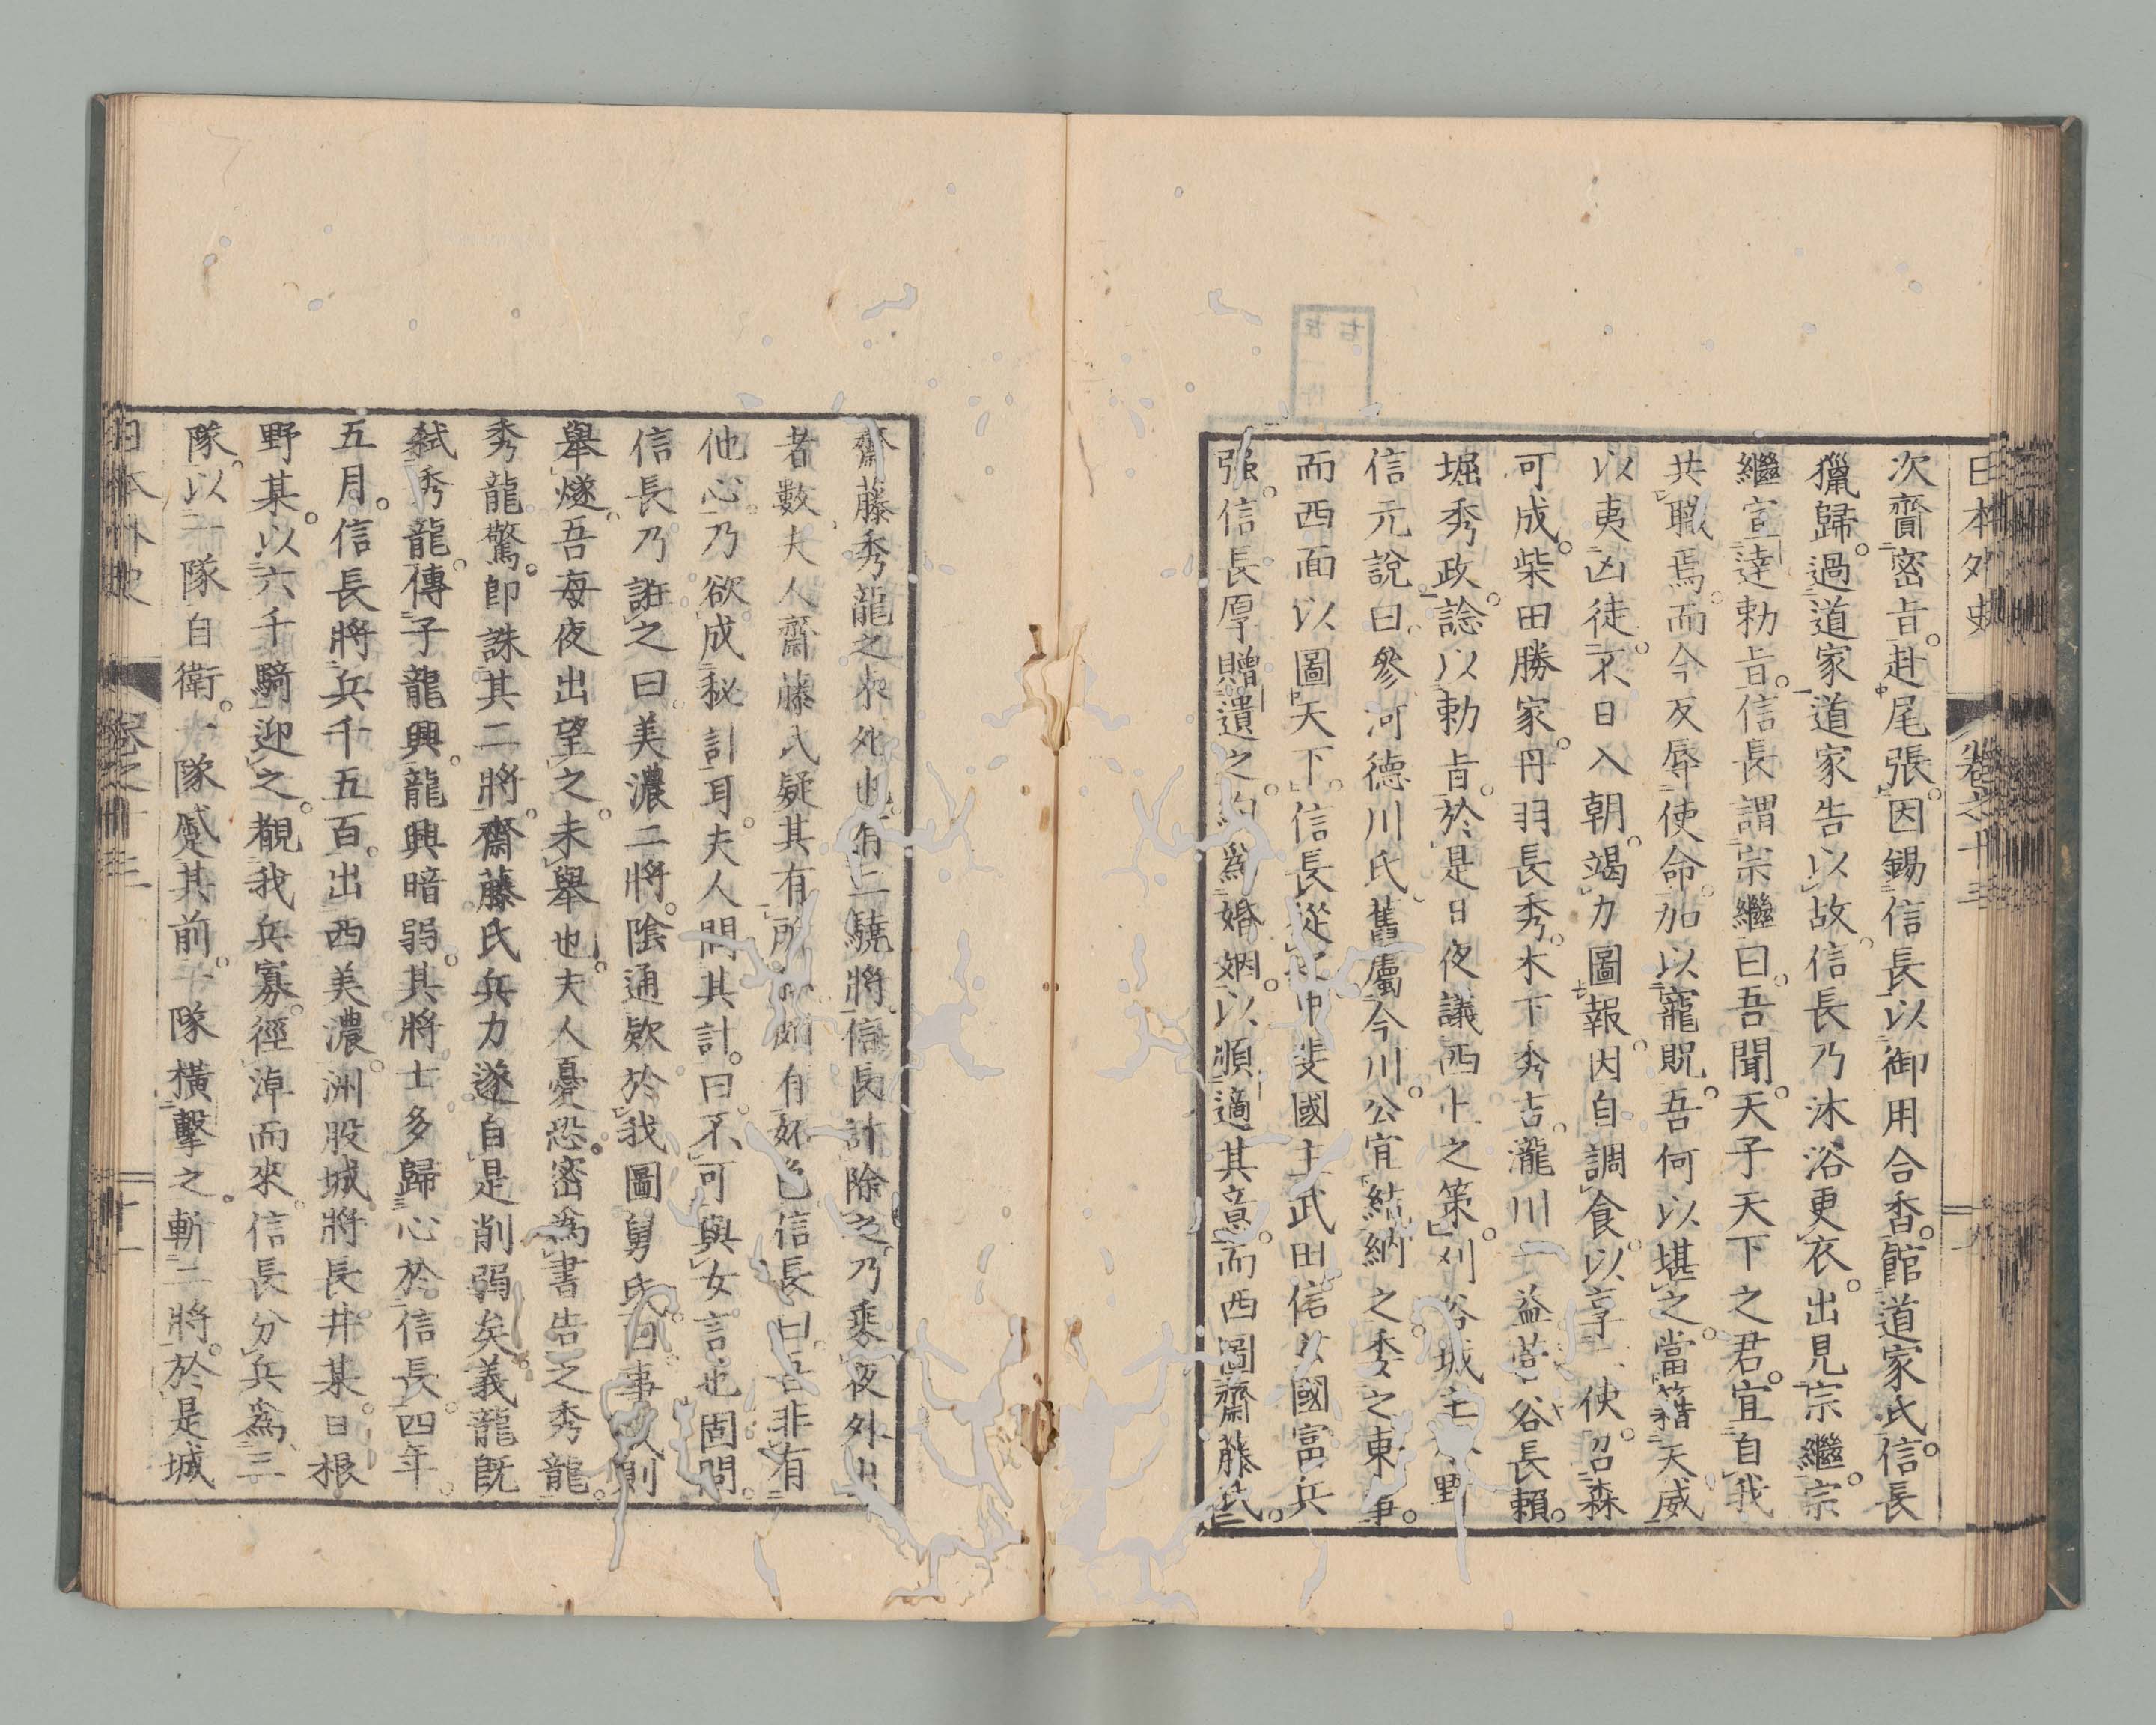 日本外史 卷之十三
次齎密旨。赴尾張。因錫信長以御用合香。館道家氏。信長
獵歸。過道家道家告以故。信長乃沐浴更衣。出見宗繼。宗
繼宣達勅旨。信長謂宗繼曰。吾聞。天子天下之君。宜自我
共職焉。而今反辱使命。加以寵貺。吾何以堪之。當籍天威
以夷凶徒。不日入朝。竭力圖報。因自調食。以享使。召森
可成。柴田勝家。丹羽長秀。木下秀吉。瀧川一益。菅谷長賴。
堀秀政。諗以勅旨。於是日夜議西上之策。刈谷城主水野
信元說曰。參河德川氏。舊屬今川。公宜結納之委之東事。
而西面以圖天下。信長從之甲斐國主武田信玄國富兵
强。信長厚贈遺之。約爲婚姻。以順適其意。而西圖齋藤氏。
齋藤秀龍之未死也。有二驍將信長計除之。乃乘夜外出
者數夫人齋藤氏疑其有所顧有妬色信長曰吾非有
他心。乃欲成秘計耳。夫人問其計。曰。不可與女言也固問。
信長乃誑之曰。美濃二將。陰通欵於我圖舅氏。曰事成則
舉燧。吾每夜出望之。未舉也。夫人憂恐。密爲書告之秀龍。
秀龍驚。卽誅其二將。齋藤氏兵力遂自是削弱矣義龍旣
弑秀龍。傳子龍興。龍興暗弱。其將士多歸心於信長。四年。
五月。信長將兵千五百。出西美濃。洲股城將長井某。日根
野某。以六千騎迎之。覩我兵寡。徑淖而來。信長分兵爲三
隊。以一隊自衛。一隊蹙其前。一隊橫擊之。斬二將。於是城
日本外史 卷之十三 十一